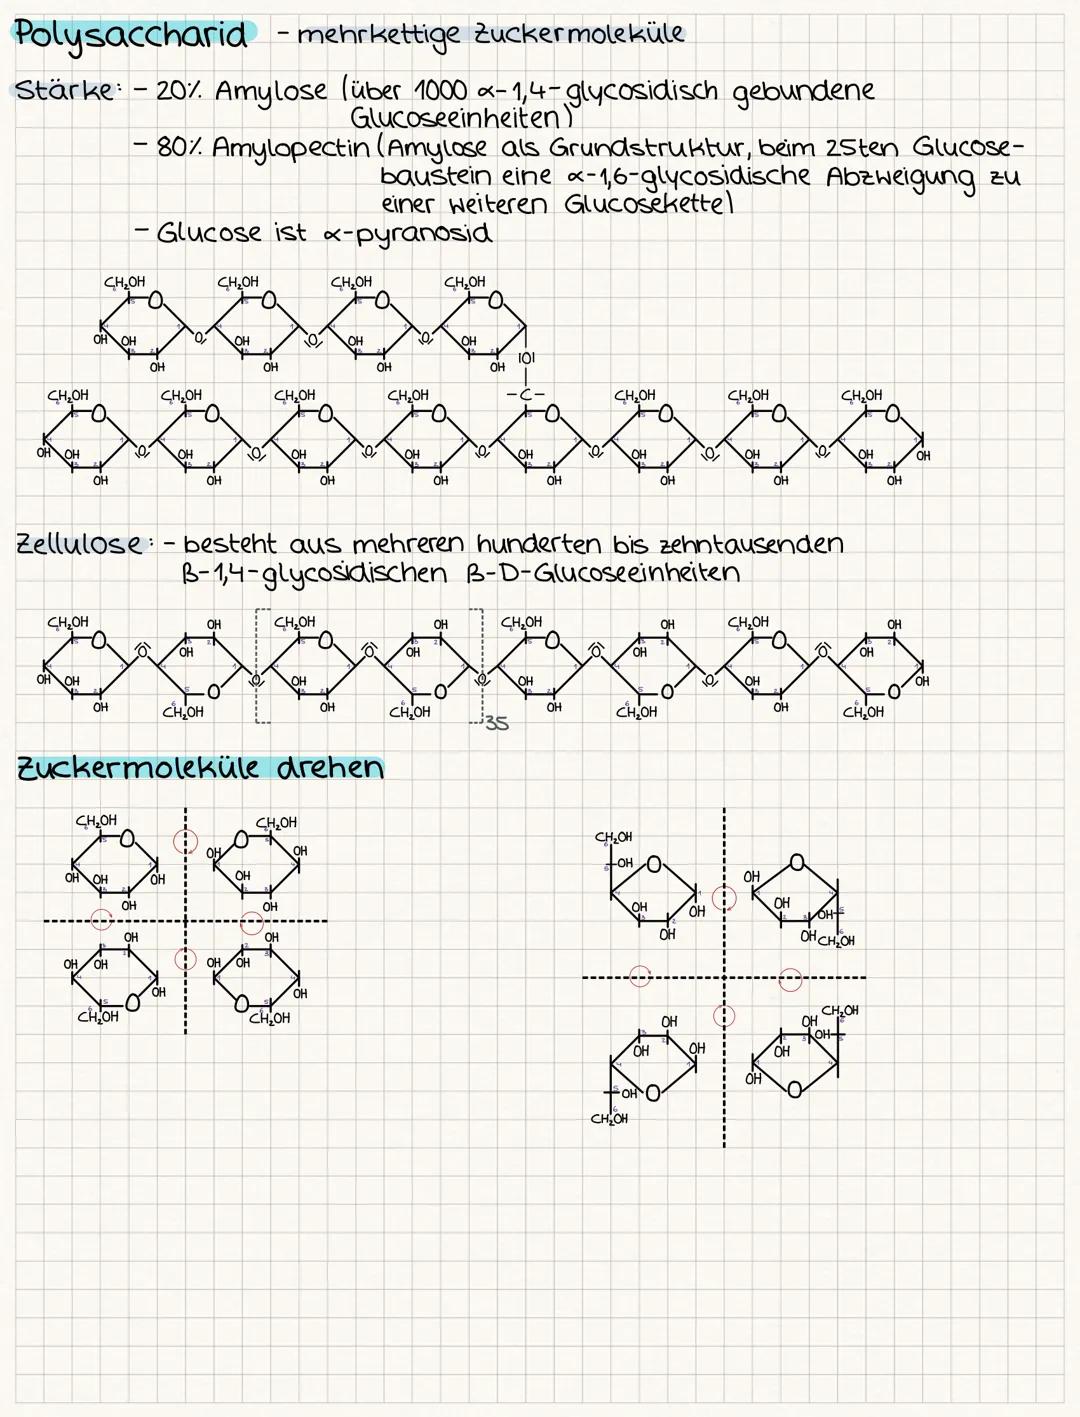 Polysaccharid - mehrkettige Zuckermoleküle
Stärke: - 20% Amylose (über 1000 α-1,4-glycosidisch gebundene
Glucoseeinheiten)
- 80% Amylopectin (Amylose als Grundstruktur, beim 25ten Glucose-
baustein eine α-1,6-glycosidische Abzweigung zu
einer weiteren Glucosekette)
- Glucose ist α-pyranosid
CH₂OH CH₂OH CH₂OH CH₂OH
O O O O
OH OH O OH O OH O OH
OH OH OH OH
IOI
CH₂OH CH₂OH CH₂OH CH₂OH -C- CH₂OH CH₂OH CH₂OH
O O O O O O O O
OH OH O OH O OH O OH O OH O OH O OH O OH OH
OH OH OH OH OH OH OH OH
Zellulose: - besteht aus mehreren hunderten bis zehntausenden
β-1,4-glycosidischen β-D-Glucoseeinheiten
CH₂OH OH CH₂OH OH CH₂OH OH CH₂OH OH
O O OH O O OH O O OH O O OH
OH OH O OH O OH O OH OH
OH O OH O OH O OH O
CH₂OH CH₂OH CH₂OH CH₂OH
35
Zuckermoleküle drehen
CH₂OH CH₂OH
O O
OH OH
OH OH OH OH
OH OH
OH OH
OH OH OH OH
OH OH
O O
CH₂OH CH₂OH
CH₂OH
OH O O
OH
OH OH OH OH
OH OH CH₂OH
OH OH CH₂OH
OH OH OH OH
OH
OH O O
CH₂OH